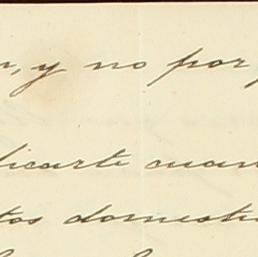 , y no por
dicarte cuan
tos domesti